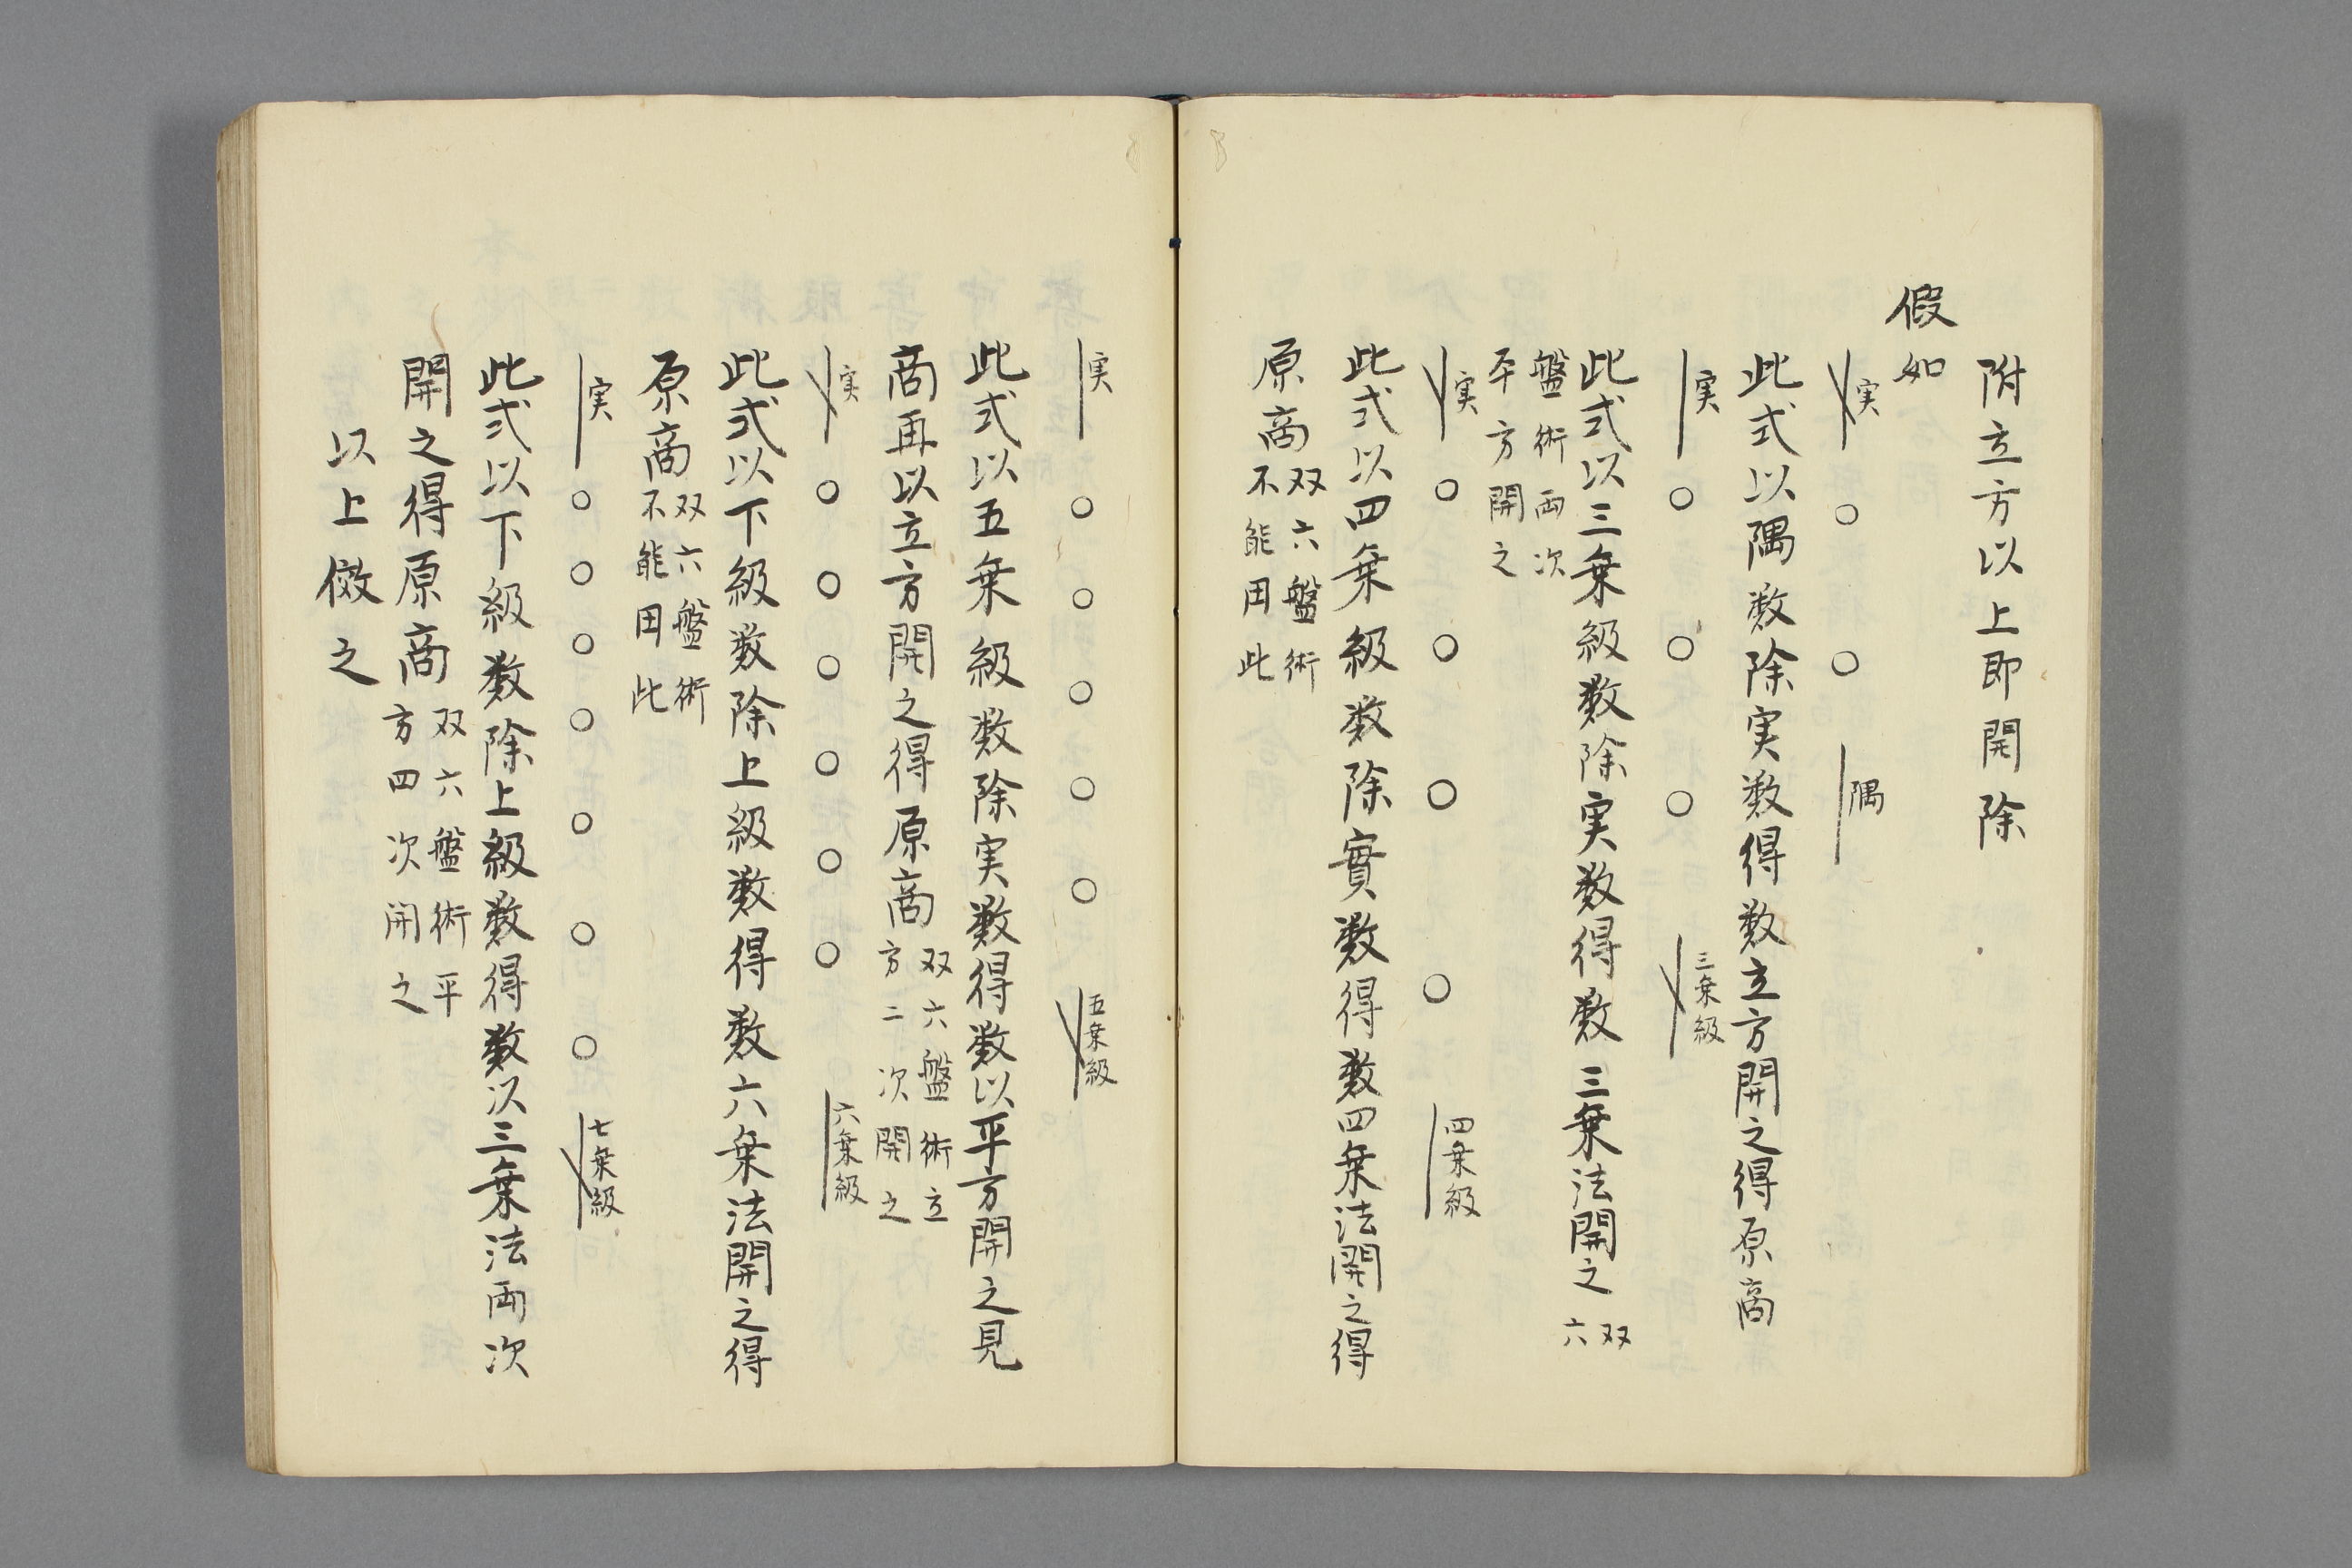 附立方以上即開除
假如
実〇〇隅
此式以隅数除実数得数立方開之得原商
実〇〇〇三乗級
此式以三乗級数除実数得数三乗法開之双六
盤術両次
平方開之
実〇〇〇〇四乗級
此式以四乗級数除實数得数四乗法開之得
原商双六盤術
不能用此
実〇〇〇〇〇五乗級
此式以五乗級数除実数得数以平方開之見
商再以立方開之得原商双六盤術立
方二次開之
実〇〇〇〇〇〇六乗級
此式以下級数除上級数得数六乗法開之得
原商双六盤術
不能用此
実〇〇〇〇〇〇〇七乗級
此式以下級数除上級数得数以三乗法両次
開之得原商双六盤術平
方四次開之
以上倣之